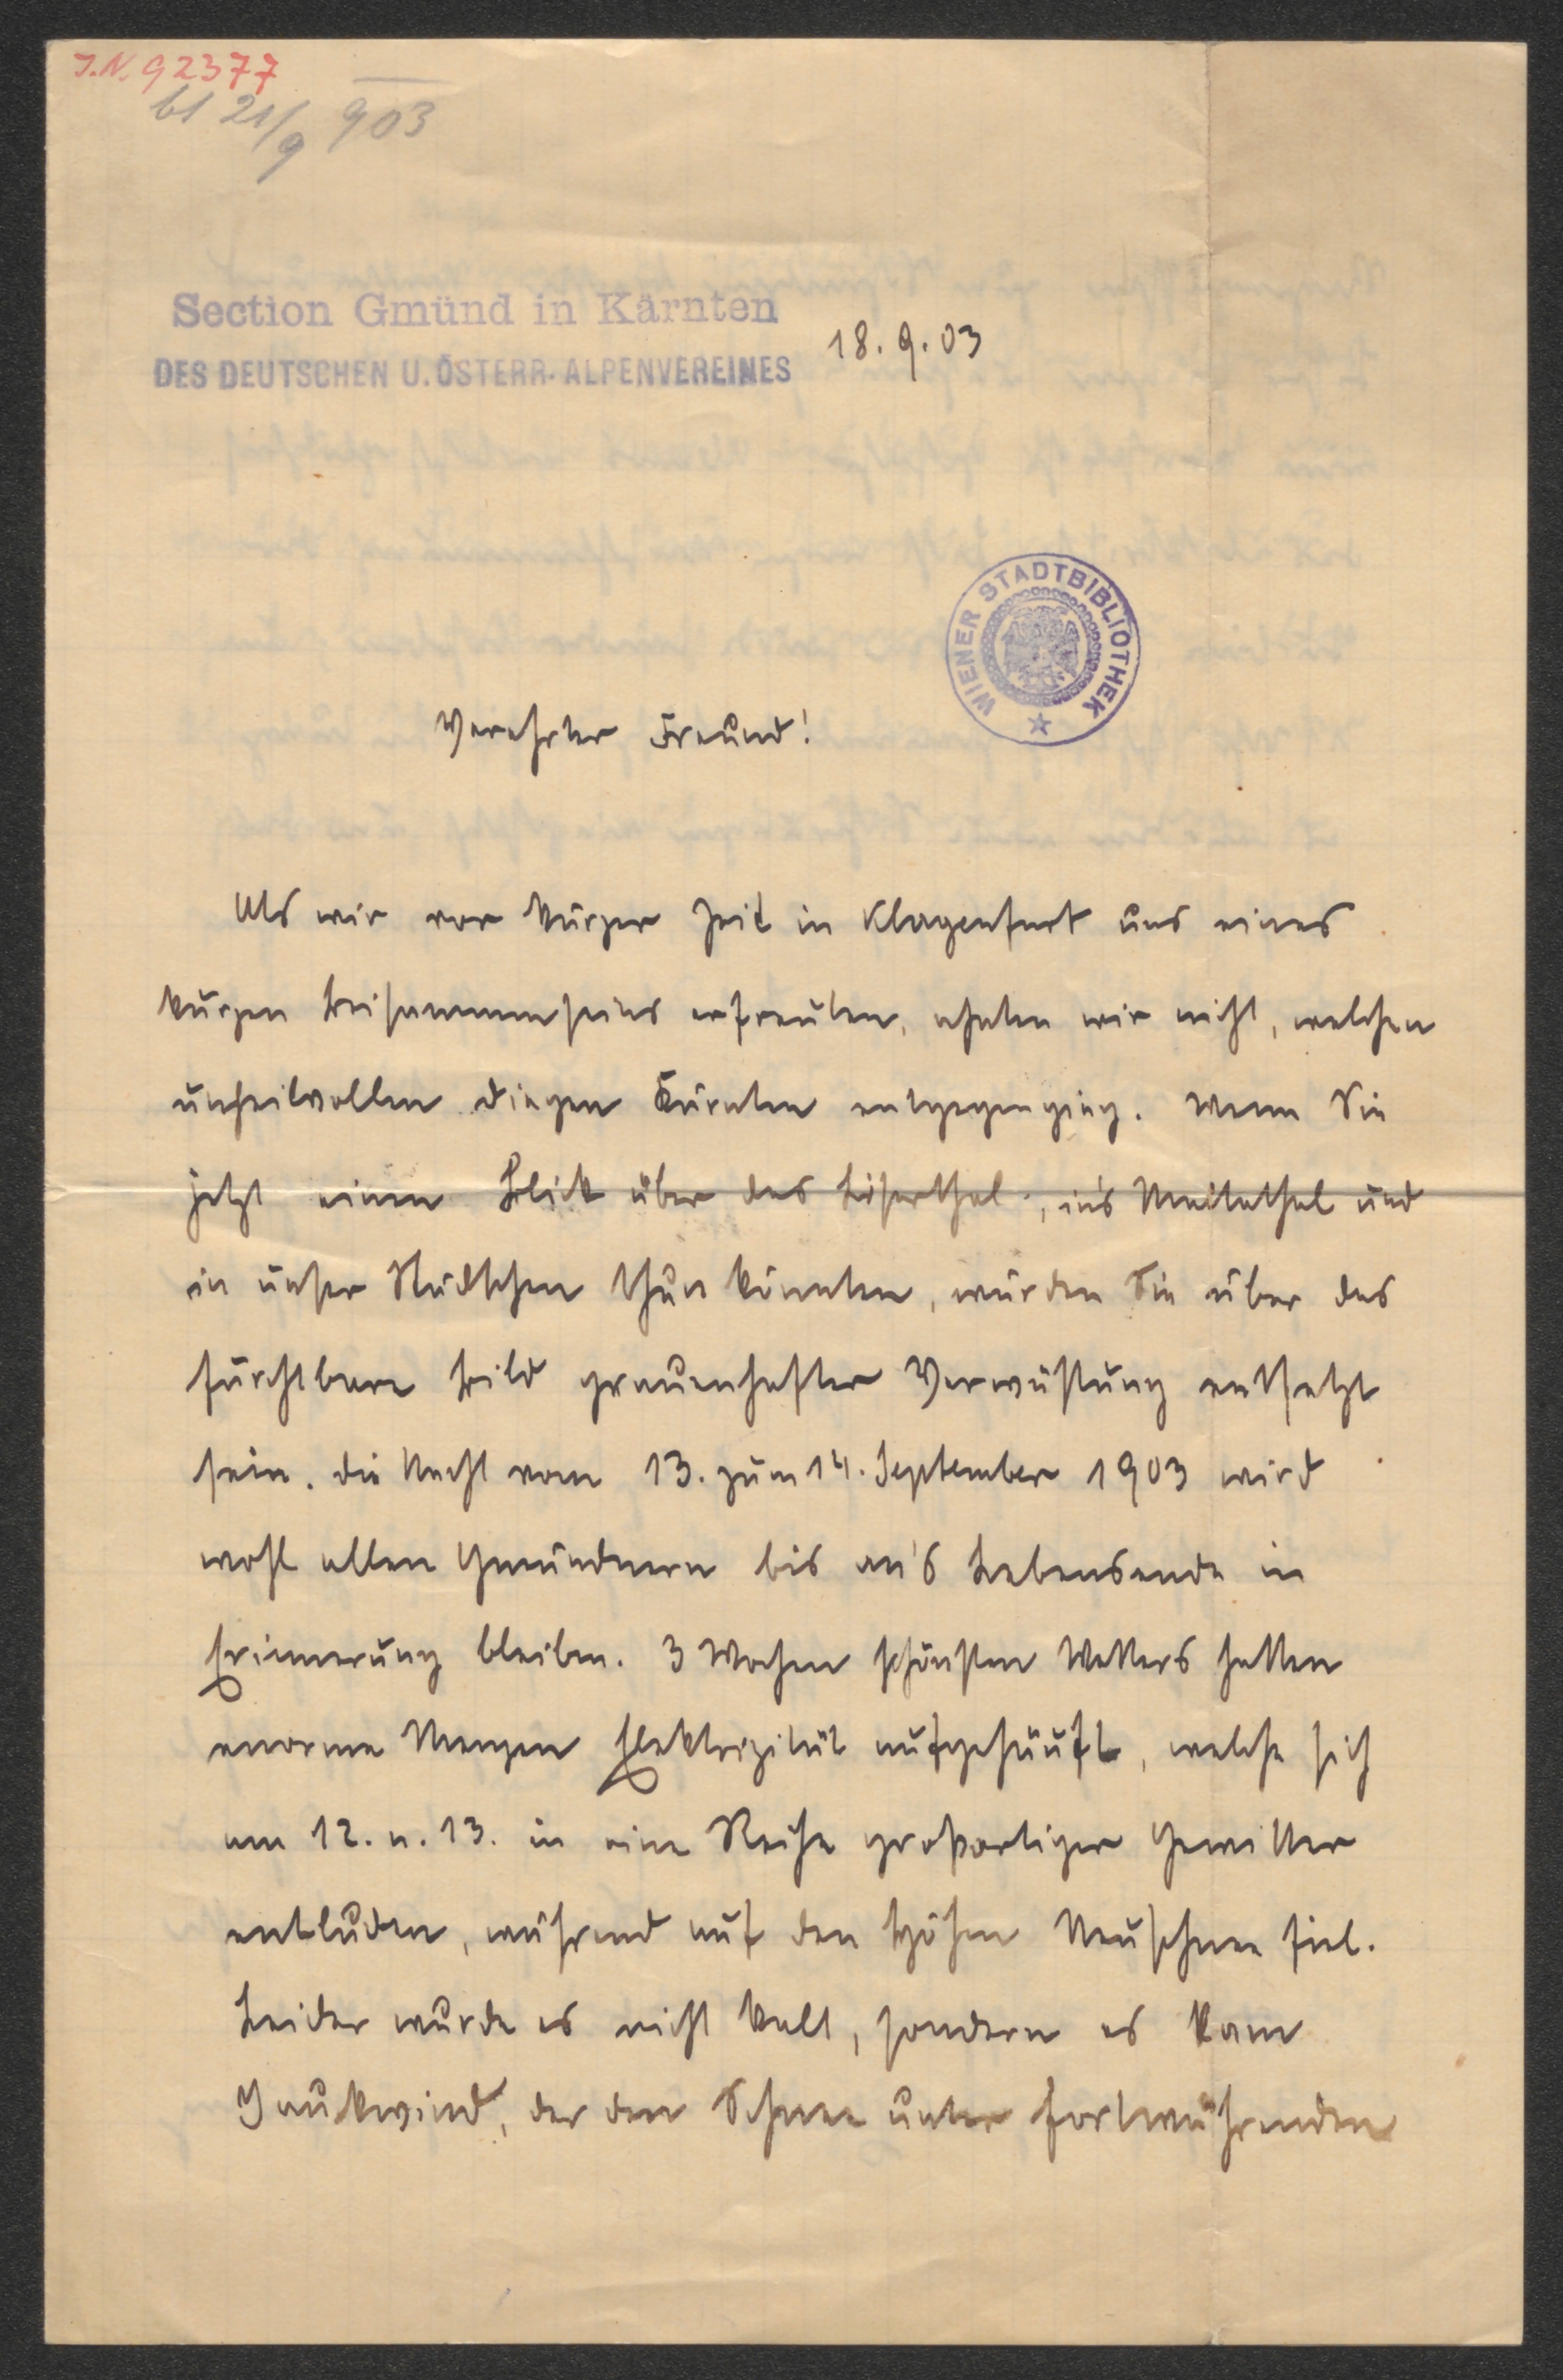 J.N. 92377
bt 21/9 903
Section Gmünd in Kärnten
DES DEUTSCHEN U. ÖSTERR. ALPENVEREINES
18.9.03
WIENER STADTBIBLIOTHEK
Verehrter Freund!
Als wir vor kurzer Zeit in Klagenfurt uns eines
kurzen Beisammenseins erfreuten, ahnten wir nicht, welchen
unheilvollen Dingen Kärnten entgegenging. Wenn Sie
jetzt einen Blick über das Lieserthal, in's Maltathal und
in unser Städtchen thun könnten, würden Sie über das
furchtbare Bild grauenhafter Verwüstung entsetzt
sein. Die Nacht vom 13. zum 14. September 1903 wird
wohl allen Gmündnern bis an's Lebensende in
Erinnerung bleiben. 3 Wochen schönsten Wetters hatten
enorme Mengen Elektrizität aufgehäuft, welche sich
am 12. u. 13. in eine Reihe großartiger Gewitter
entluden, während auf den Höhen Neuschnee fiel.
Leider wurde es nicht kalt, sondern es kam
Jaukwind, der den Schnee unter fortwährenden